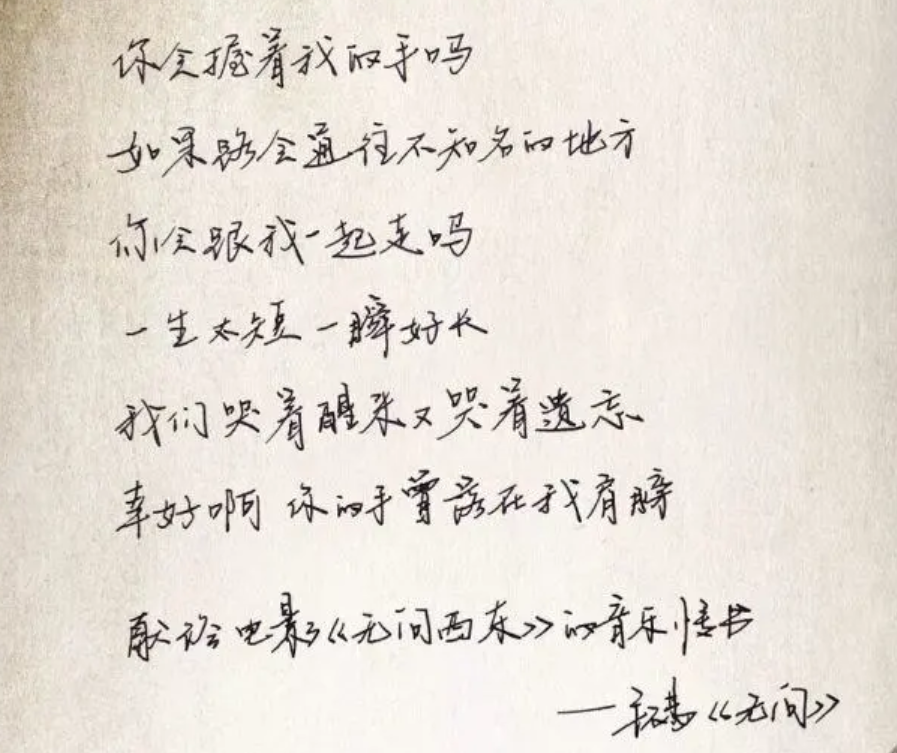 你会握着我的手吗
如果路会通往不知名的地方
你会跟我一起走吗
一生太短 一瞬好长
我们哭着醒来又哭着遗忘
幸好啊 你的手曾落在我肩膀
献给电影《无问西东》的音乐情书
——毛不易《无问》